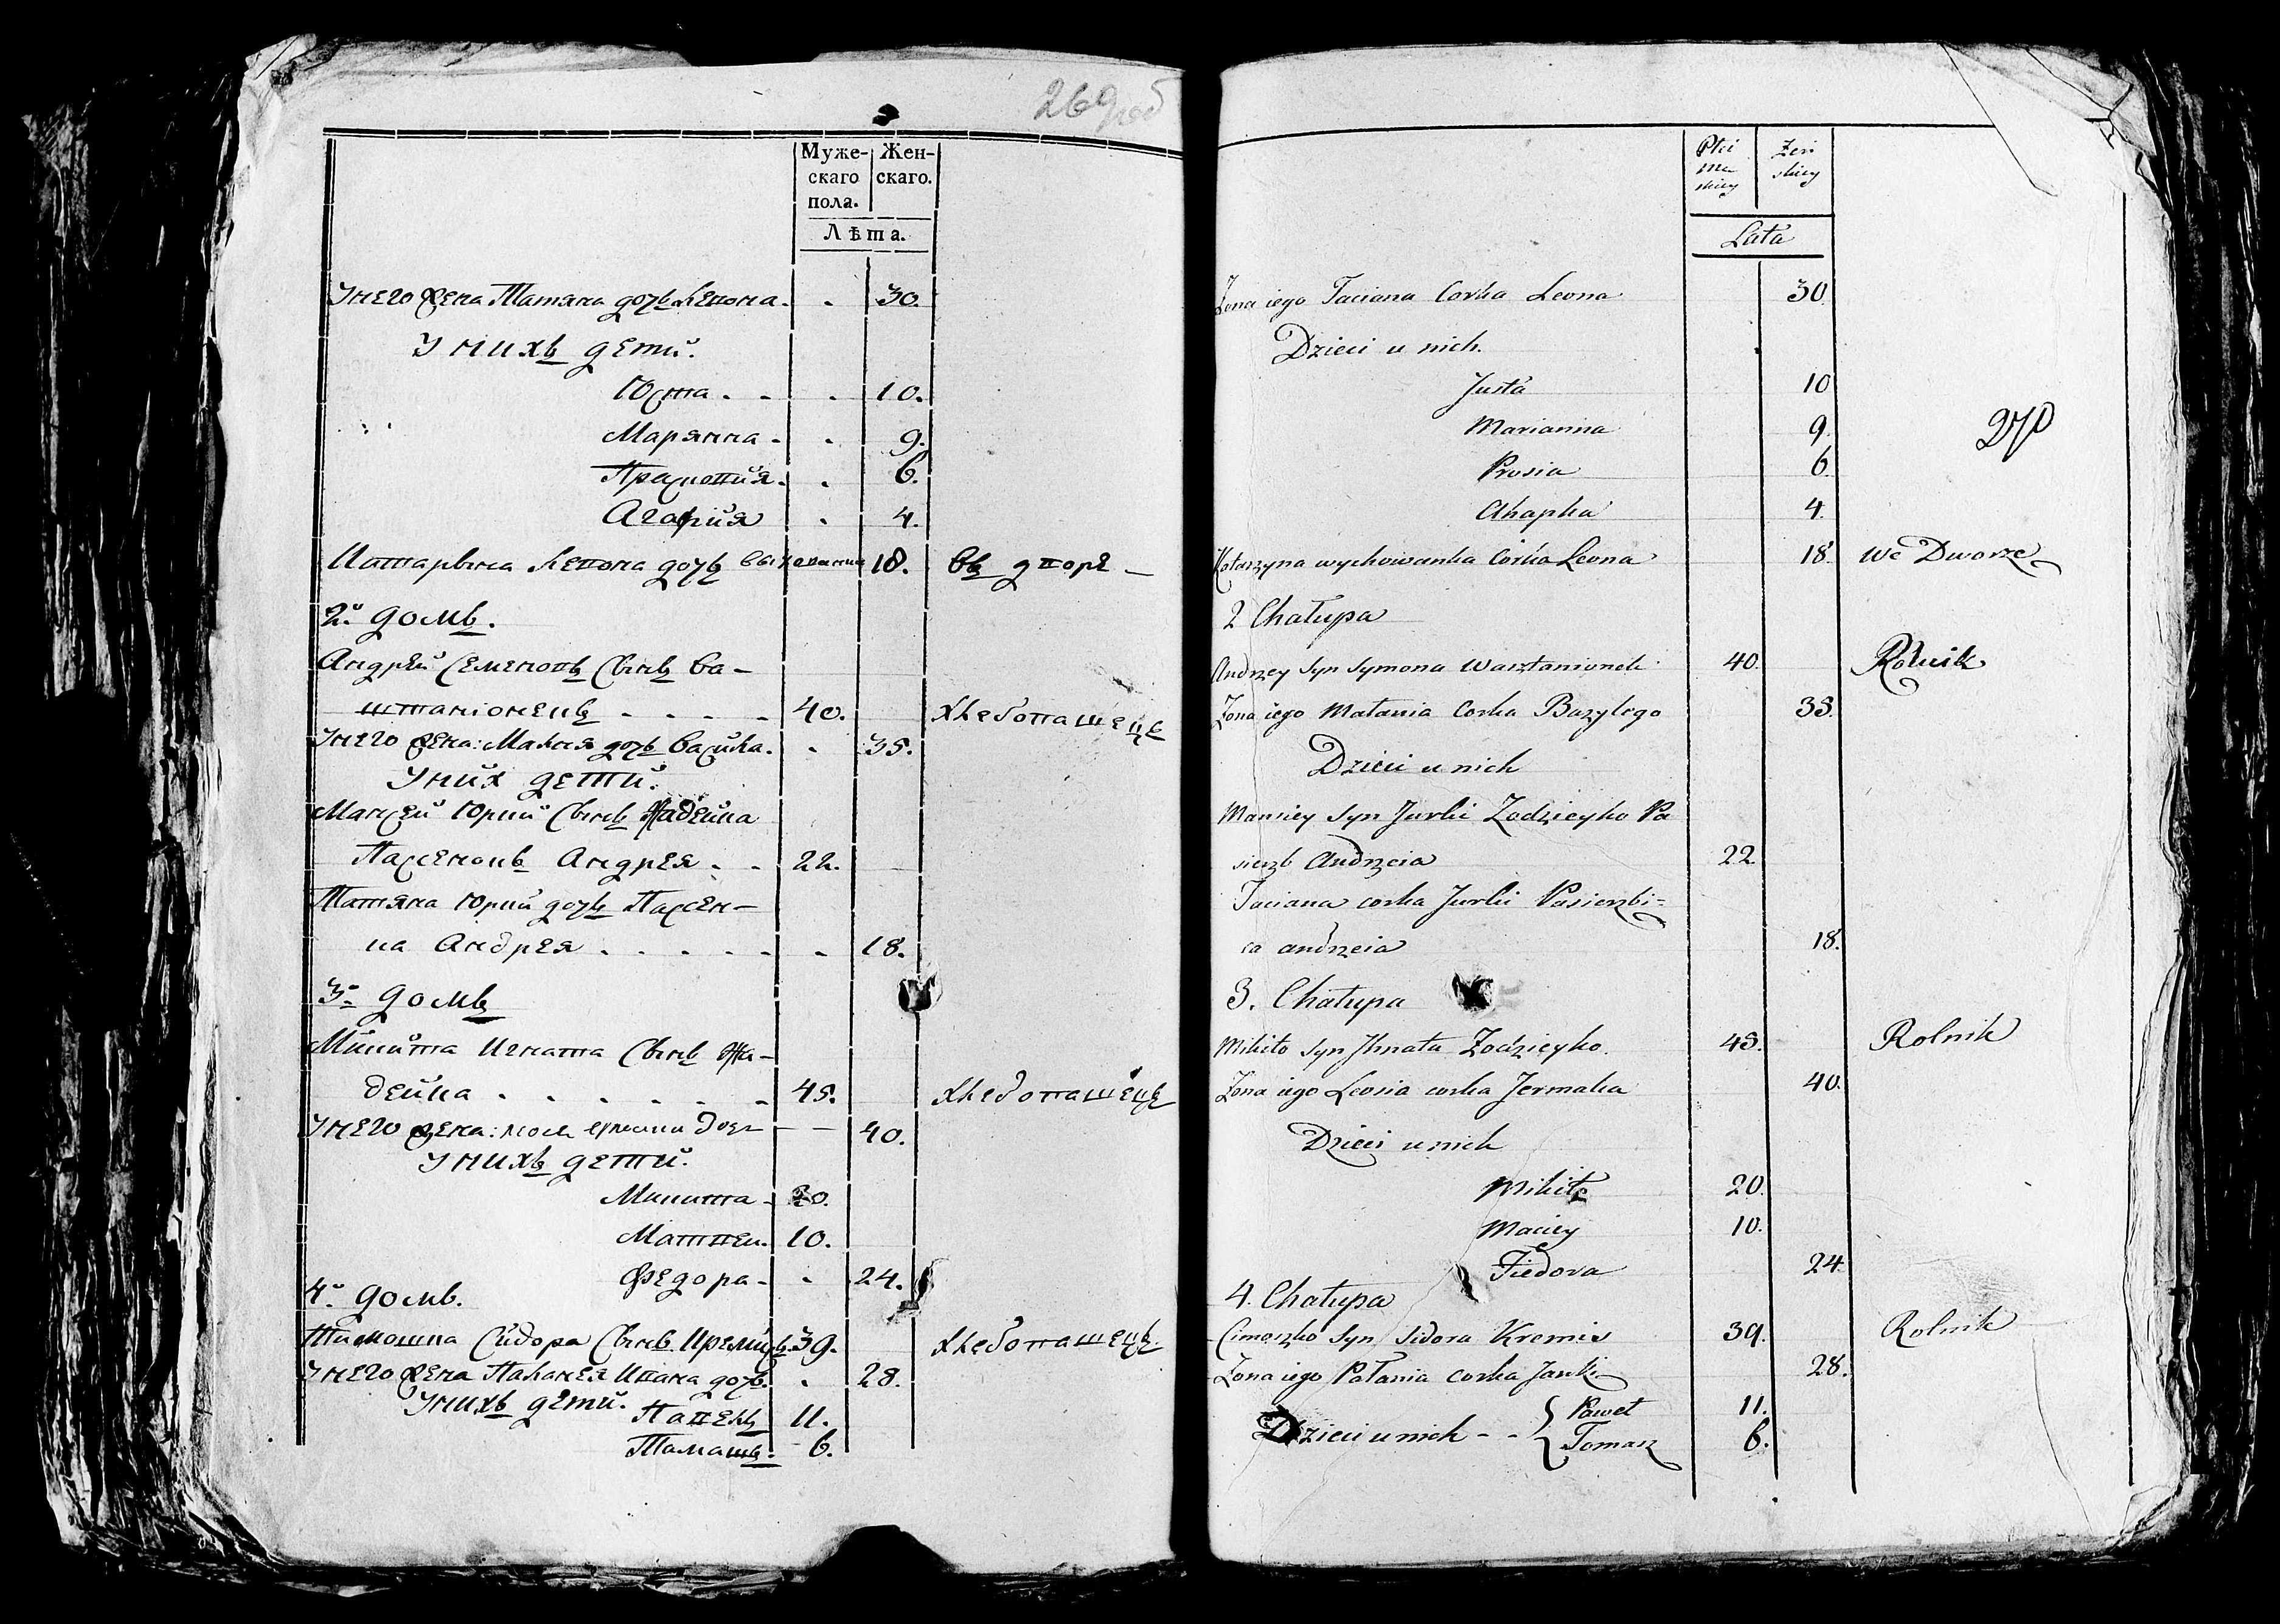 269 об
Муже-
скаго
пола.
Жен-
скаго.
Лѣта.
У него жена Татяна дочь Леѡна. 30.
У нихъ дети.
Юста 10.
Марянна 9.
Прасковия 6.
Агафия 4.
Катарына Леона дочь выхованка 18. въ дворе
2й домъ.
Андрей Семеновъ Сынъ Ва-
штанионекъ 40. хлебопашецъ
У него жена: Маланя дочь Василя. 35.
У них дети.
Мансей Юрки Сынъ Жадейка
Пасенокъ Андрея 22.
Татяна Юрки дочь Пасен-
ка Андрея 18.
3й домъ
Микита Игната Сынъ Жа-
дейка 45. хлебопашецъ
У него жена: 40.
У нихъ дети.
Микита 20.
Матвей 10.
Федора 24.
4й домъ.
Тимошка Сидора Сынъ Кремисъ 39. хлебопашецъ
У него жена Паланея Ивана дочь. 28.
У нихъ дети. Павелъ 11.
Тамашъ. 6.
Płci
Mę
skiey
Żeń
skiey
Lata
270
Żona iego Taciana Corka Leona 30.
Dzieci u nich.
Justa 10
Marianna 9.
Prosia 6.
Ahapka 4.
Katarzyna wychowanka Corka Leona 18. we Dworze
2 Chałupa
Andrzey Syn Symona Warsztanionek 40. Rolnik
Żona iego Małania Corka Bazylego 35.
Dzieci u nich
Mansiey Syn Jurki Żodzieyko Pa
sierzb Andrzeia 22.
Taciana corka Jurki Pasierzbi=
ca andrzeia 18.
3. Chałupa
Mikito Syn Jhnata Żodzieyko. 45. Rolnik
Żona iego Leosia corka Jermaka 40.
Dzieci u nich
Mikito 20.
Maciey 10.
Fiedora 24.
4. Chałupa
Cimoszko Syn Sidora Kremis 39. Rolnik
Żona iego Pałania corka Janki 28.
Dzieci u nich - - Paweł 11.
Tomasz 6.